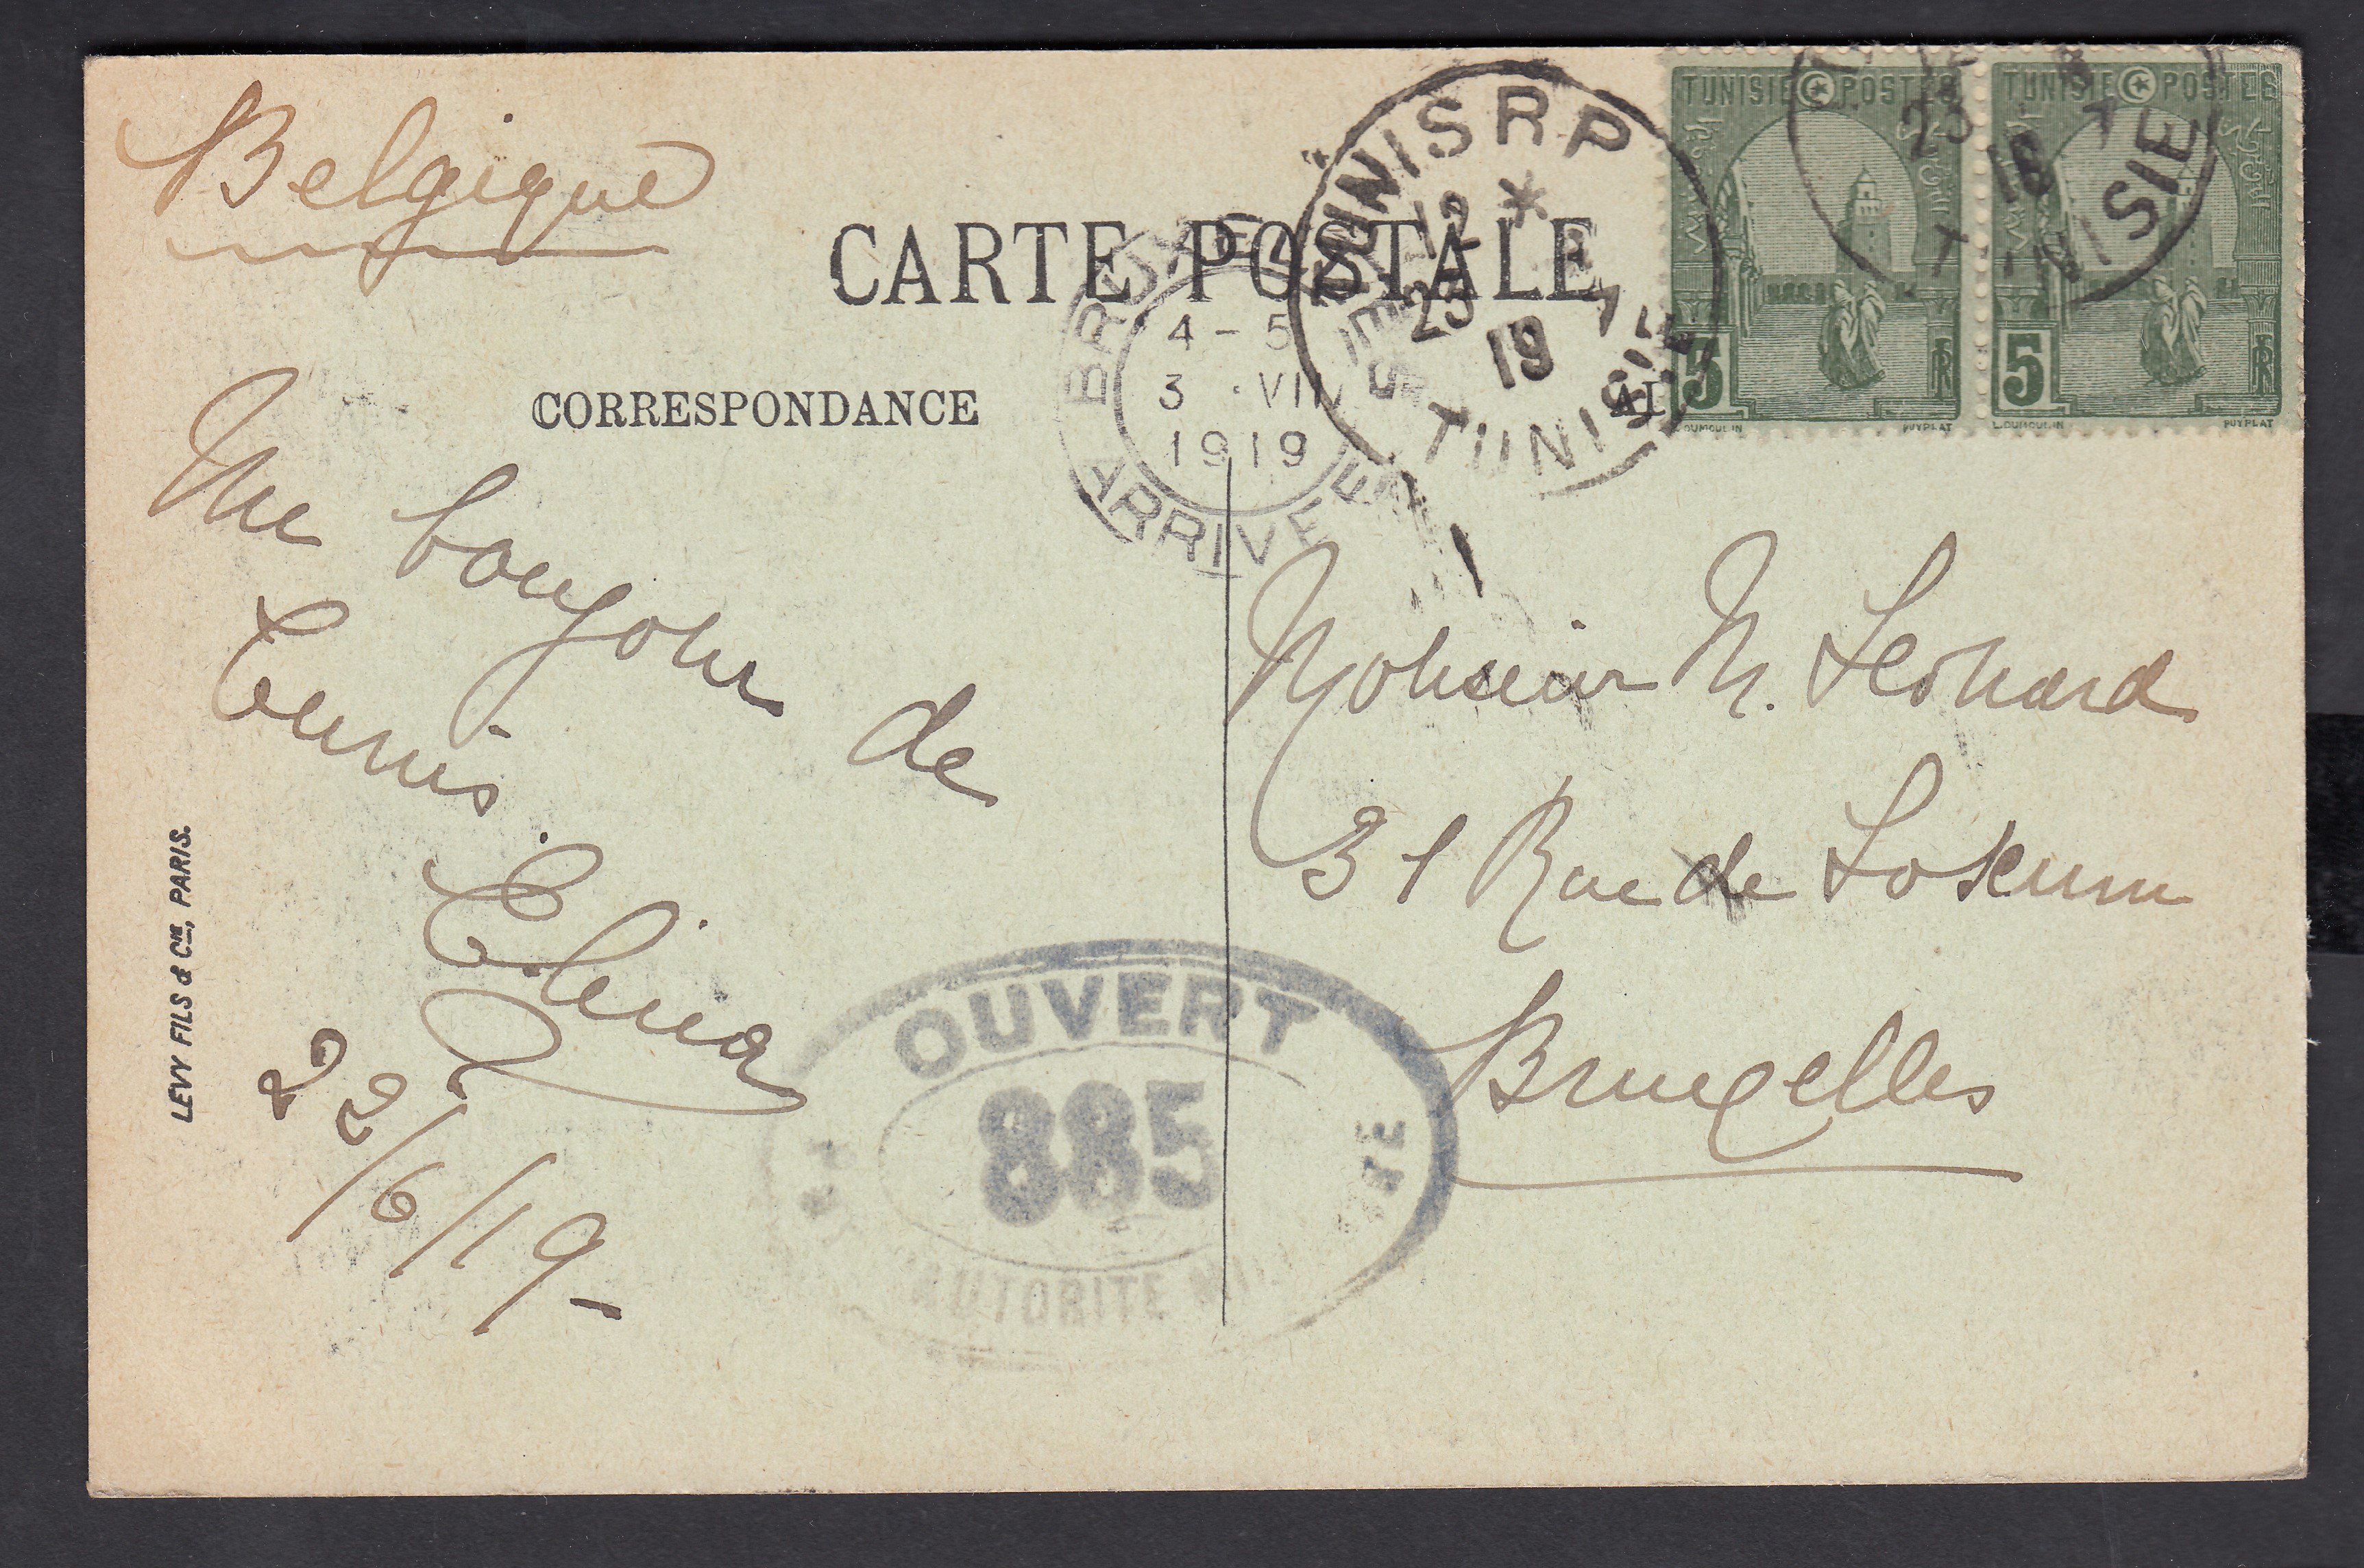 Belgique
CARTE POSTALE
CORRESPONDANCE
Un bonjour de
Tunis
22/6/19-
Monsieur N. Leonard
31 Rue de Loxum
Bruxelles
LEVY FILS & CIE, PARIS.
TUNIS R P
12 *
23
19
TUNISIE
BRUXELLES
4-5
3 ·VII
1919
ARRIVEE
OUVERT
885
AUTORITE
TUNISIE POSTES
5
RF
L.DUMOULIN
PUYPLAT
TUNISIE POSTES
5
RF
L.DUMOULIN
PUYPLAT